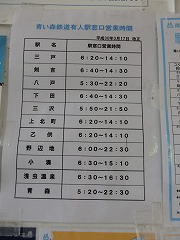 青い森鉄道有人駅窓口営業時間
平成30年3月17日 改正
駅 名 駅窓口営業時間
三 戸 6:20~14:10
剣 吉 6:40~14:30
八 戸 5:30~22:30
下 田 6:40~14:30
三 沢 5:50~21:50
上北町 6:20~14:10
乙 供 6:20~14:10
野辺地 6:00~20:30
小 湊 6:30~15:10
浅虫温泉 6:30~16:30
青 森 5:20~22:30